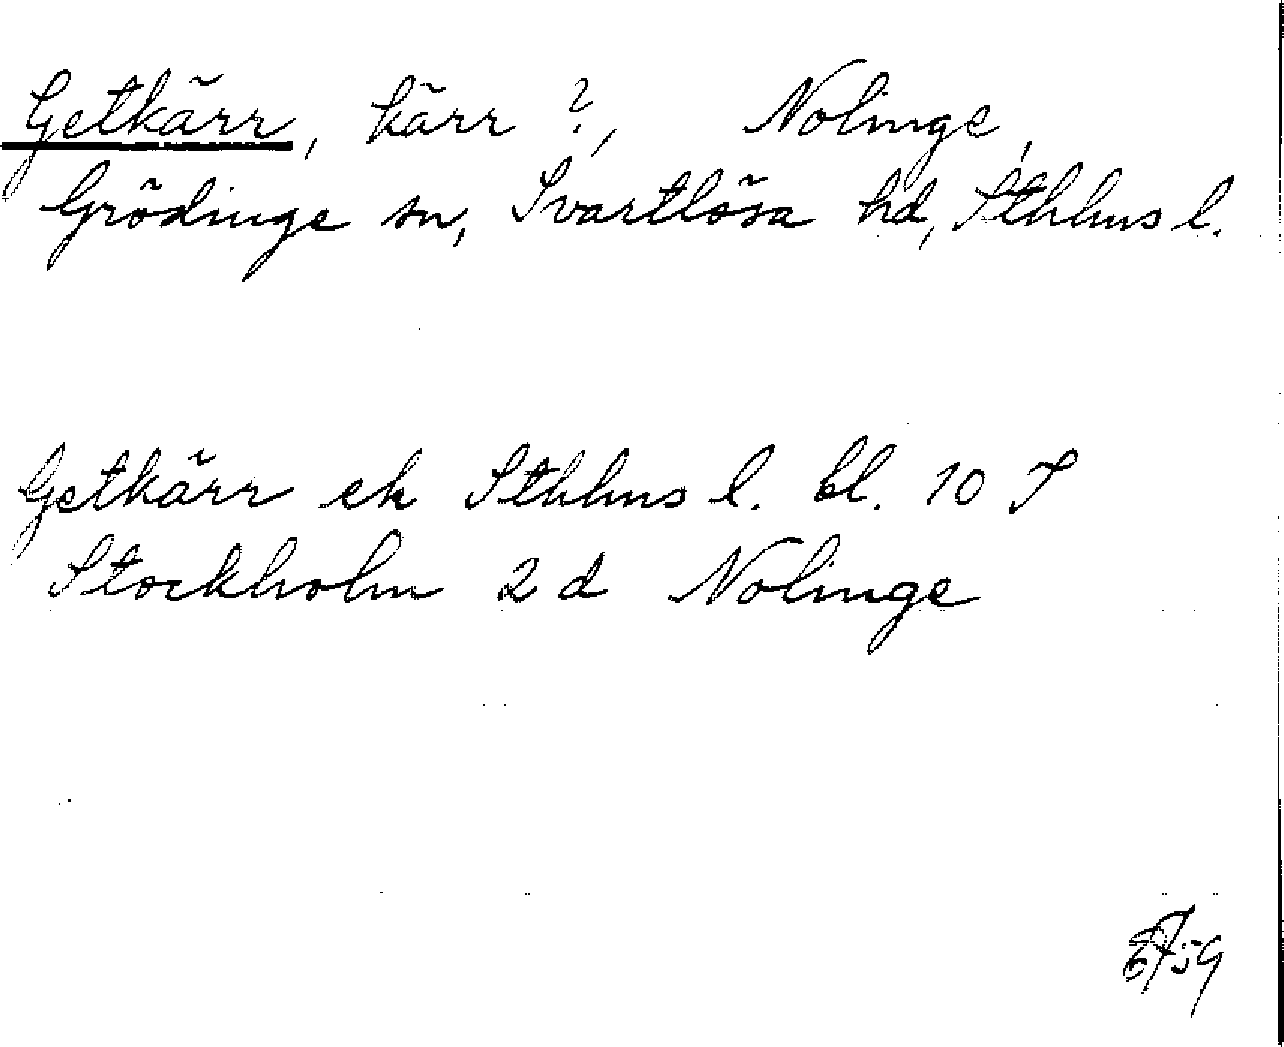 Getkärr, kärr?, Nolinge,
Grödinge sn, Svartlösa hd, Sthlms l.
Getkärr ek Sthlms l. bl. 10 S
Stockholm 2 d Nolinge